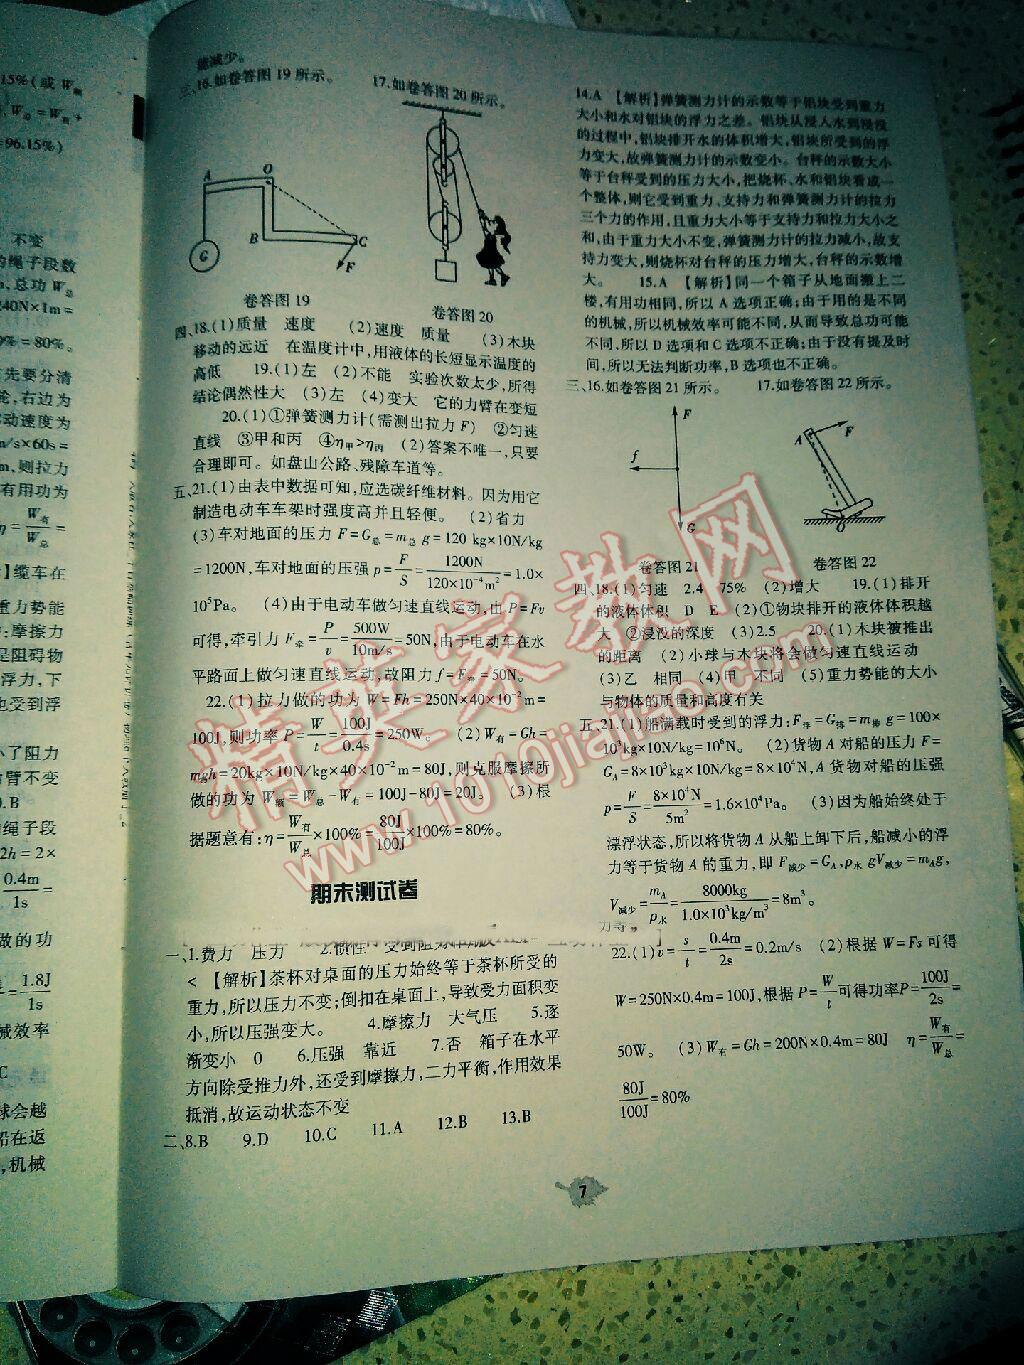 能减少。
三、16.如卷答图 19 所示。 17.如卷答图 20 所示。
A O
B C
G F
卷答图 19 卷答图 20
四、18.(1)质量 速度 (2)速度 质量 (3)木块
移动的远近 在温度计中,用液体的长短显示温度的
高低 19.(1)左 (2)不能 实验次数太少,所得
结论偶然性大 (3)左 (4)变大 它的力臂在变短
20.(1)①弹簧测力计(需测出拉力 F) ②匀速
直线 ③甲和丙 ④η甲>η丙 (2)答案不唯一,只要
合理即可。如盘山公路、残障车道等。
五、21.(1)由表中数据可知,应选碳纤维材料。因为用它
制造电动车车架时强度高并且轻便。 (2)省力
(3)车对地面的压力 F=G总=m总 g=120 kg×10N/kg
=1200N,车对地面的压强 p=F/S=1200N/120×10⁻⁴m²=1.0×
10⁵Pa。 (4)由于电动车做匀速直线运动,由 P=Fv
可得,牵引力 F牵=P/v=500W/10m/s=50N,由于电动车在水
平路面上做匀速直线运动,故阻力 f=F牵=50N。
22.(1)拉力做的功为 W=Fh=250N×40×10⁻²m=
100J,则功率 P=W/t=100J/0.4s=250W。 (2)W有=Gh=
mgh=20kg×10N/kg×40×10⁻²m=80J,则克服摩擦所
做的功为 W额=W总-W有=100J-80J=20J。 (3)根
据题意有:η=W有/W总×100%=80J/100J×100%=80%。
期末测试卷
一、1.费力 压力 2.惯性
< 【解析】茶杯对桌面的压力始终等于茶杯所受的
重力,所以压力不变;倒扣在桌面上,导致受力面积变
小,所以压强变大。 4.摩擦力 大气压 5.逐
渐变小 0 6.压强 靠近 7.否 箱子在水平
方向除受推力外,还受到摩擦力,二力平衡,作用效果
抵消,故运动状态不变
二、8.B 9.D 10.C 11.A 12.B 13.B
14.A 【解析】弹簧测力计的示数等于铝块受到重力
大小和水对铝块的浮力之差。铝块从浸入水到浸没
的过程中,铝块排开水的体积增大,铝块所受到的浮
力变大,故弹簧测力计的示数变小。台秤的示数大小
等于台秤受到的压力大小,把烧杯、水和铝块看成一
个整体,则它受到重力、支持力和弹簧测力计的拉力
三个力的作用,且重力大小等于支持力和拉力大小之
和,由于重力大小不变,弹簧测力计的拉力减小,故支
持力变大,则烧杯对台秤的压力增大,台秤的示数增
大。 15.A 【解析】同一个箱子从地面搬上二
楼,有用功相同,所以 A 选项正确;由于用的是不同
的机械,所以机械效率可能不同,从而导致总功可能
不同,所以 D 选项和 C 选项不正确;由于没有提及时
间,所以无法判断功率,B 选项也不正确。
三、16.如卷答图 21 所示。 17.如卷答图 22 所示。
F
f
G
A F
O
卷答图 21 卷答图 22
四、18.(1)匀速 2.4 75% (2)增大 19.(1)排开
的液体体积 D E (2)①物块排开的液体体积越
大 ②浸没的深度 (3)2.5 20.(1)木块被推出
的距离 (2)小球与木块将会做匀速直线运动
(3)乙 相同 (4)甲 不同 (5)重力势能的大小
与物体的质量和高度有关
五、21.(1)船满载时受到的浮力:F浮=G排=m排 g=100×
10³kg×10N/kg=10⁶N。 (2)货物 A 对船的压力 F=
GA=8×10³kg×10N/kg=8×10⁴N,A 货物对船的压强
p=F/S=8×10⁴N/5m²=1.6×10⁴Pa。 (3)因为船始终处于
漂浮状态,所以将货物 A 从船上卸下后,船减小的浮
力等于货物 A 的重力,即 F减少=GA,ρ水 gV减少=mAg,
V减少=mA/ρ水=8000kg/1.0×10³kg/m³=8m³。
22.(1)v=s/t=0.4m/2s=0.2m/s (2)根据 W=Fs可得
W=250N×0.4m=100J,根据 P=W/t可得功率P=100J/2s=
50W。 (3)W有=Gh=200N×0.4m=80J η=W有/W总=
80J/100J=80%
7
精英家教网
www.1010jiajiao.com
15%(或 W额
,W总=W有+
=96.15%)
不变
的绳子段数
m,总功 W总
240N×1m=
0%=80%。
首先要分清
轮,右边为
动速度为
m/s×60s=
m,则拉力
有用功为
η=W有/W总=
】缆车在
重力势能
;摩擦力
是阻碍物
浮力,下
也受到浮
小了阻力
臂不变
.B
绳子段
2h=2×
0.4m/1s=
做的功
=1.8J/1s
械效率
C
球会越
船在返
,机械